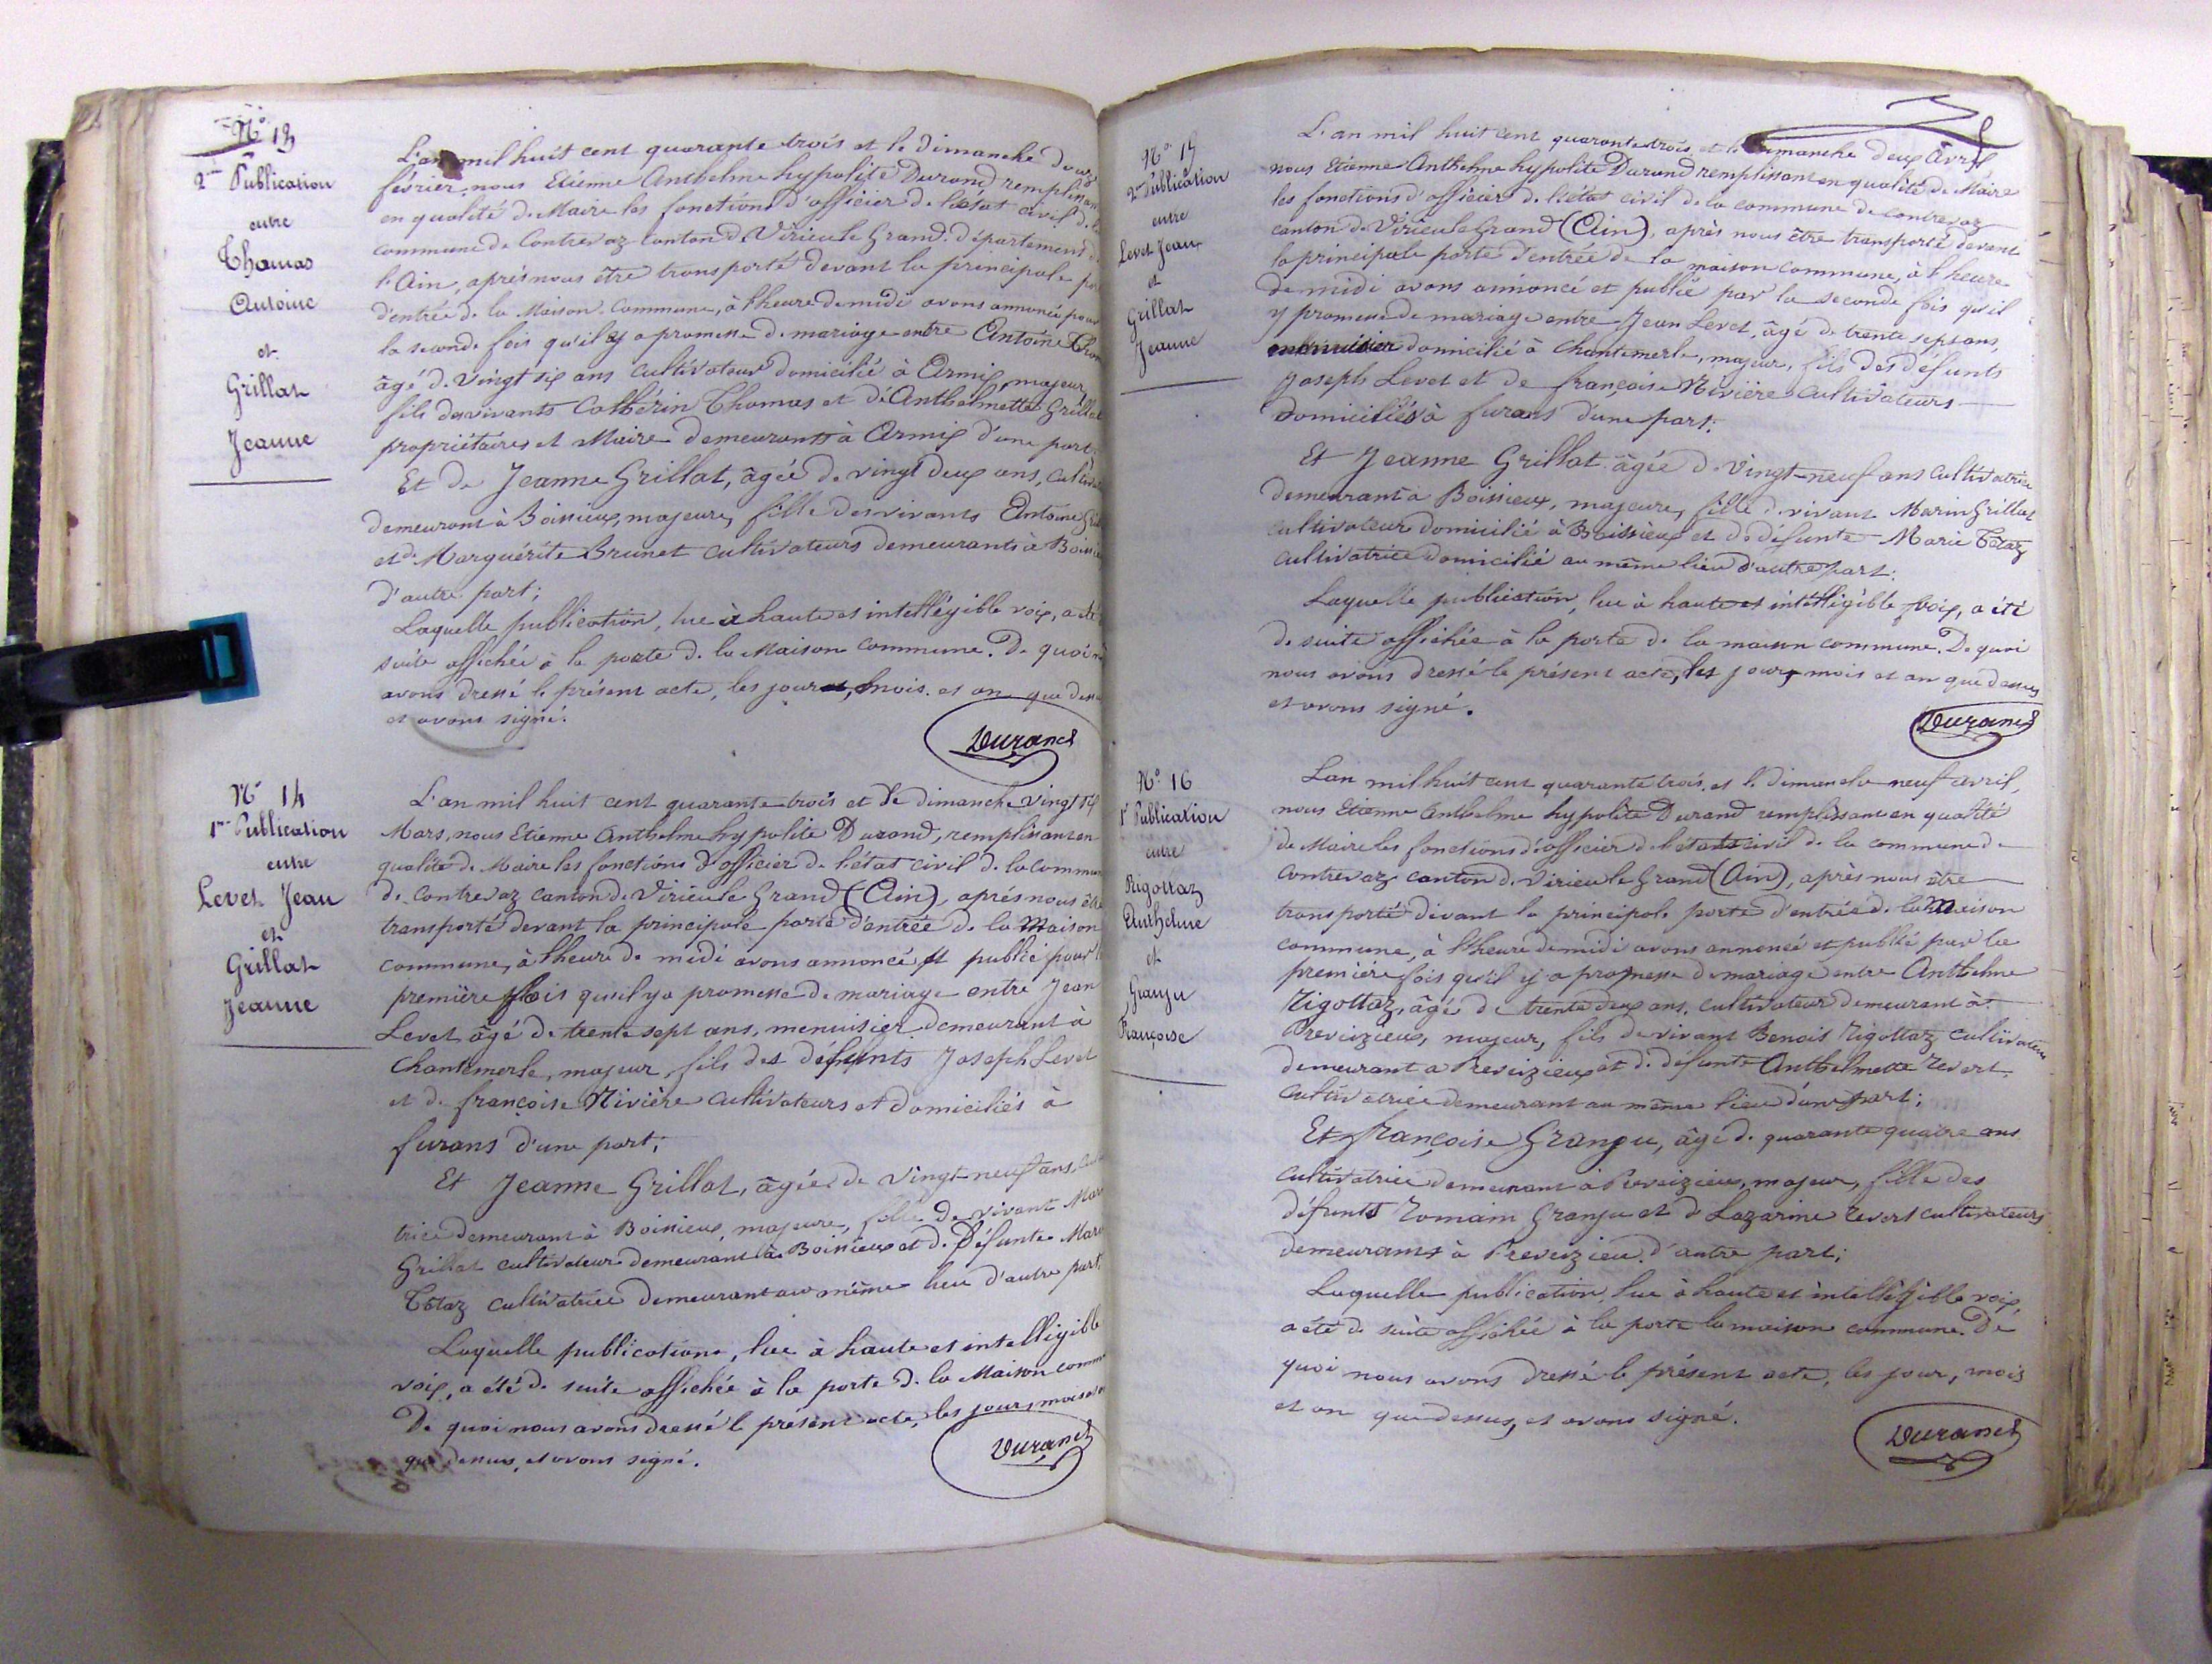 N° 13
2me Publication
entre
Thomas
Antoine
et
Grillat
Jeanne
L'an mil huit cent quarante trois et le dimanche douze
février, nous Etienne Anthelme hypolite Durand remplissant
en qualité de Maire les fonctions d'officier de l'état civil de la
commune de Contrevoz canton de Virieu le Grand département de
l'Ain, après nous être transporté devant la principale
d'entrée de la Maison Commune, à l'heure de midi avons annoncé pour
la seconde fois qu'il y a promesse de mariage entre Antoine
âgé de vingt six ans cultivateur domicilié à Armix, majeur,
fils des vivants Cathérin Thomas et d'Anthelmette Grillat
propriétaires et Maire demeurants à Armix d'une part
Et de Jeanne Grillat, âgée de vingt deux ans,
demeurant à Boissieux, majeure, fille des vivants Antoine
et de Marguérite Brunet cultivateurs demeurants à
d'autre part;
Laquelle publication, lue à haute et intelligible voix, a été
suite affichée à la porte de la Maison commune. De quoi
avons dressé le présent acte, les jour, mois et an que
et avons signé.
Durand
N° 14
1re Publication
entre
Levet Jean
et
Grillat
Jeanne
L'an mil huit cent quarante trois et le dimanche vingt six
Mars, nous Etienne Anthelme hypolite Durand, remplissant en
qualité de Maire les fonctions d'officier de l'état civil de la
de Contrevoz canton de Virieu le Grand (Ain), après nous être
transporté devant la principale porte d'entrée de la Maison
commune, à l'heure de midi avons annoncé et publié pour
première fois qu'il y a promesse de mariage entre Jean
Levet âgé de trente sept ans, menuisier demeurant à
Chantemerle, majeur, fils des défunts Joseph Levet
et de françoise Rivière cultivateurs et domiciliés à
furans d'une part;
Et Jeanne Grillat, âgée de vingt-neuf ans,
trice demeurant à Boissieux, majeure, fille de vivant
Grillat cultivateur demeurant à Boissieux et de Défunte
Tétaz cultivatrice demeurant au même lieu d'autre part.
Laquelle publication, lue à haute et intelligible
voix, a été de suite affichée à la porte de la Maison
De quoi nous avons dressé le présent acte, les jour, mois et
que dessus, et avons signé.
Durand
N° 15
2me Publication
entre
Levet Jean
et
Grillat
Jeanne
L'an mil huit cent quarante trois et le dimanche deux Avril
nous Etienne Anthelme hypolite Durand remplissant en qualité de Maire
les fonctions d'officier de l'état civil de la commune de Contrevoz
canton de Virieu le Grand (Ain), après nous être transporté devant
la principale porte d'entrée de la maison commune, à l'heure
de midi avons annoncé et publié par la seconde fois qu'il
y promesse de mariage entre Jean Levet, âgé de trente sept ans,
menuisier domicilié à Chantemerle, majeur, fils des défunts
Joseph Levet et de françoise Rivière cultivateurs
domiciliés à furans d'une part;
Et Jeanne Grillat âgée de vingt-neuf ans cultivatrice
demeurant à Boissieux, majeure, fille de vivant Marin Grillat
cultivateur domicilié à Boissieux et de défunte Marie Tétaz
cultivatrice domicilié au même lieu d'autre part;
Laquelle publication, lue à haute et intelligible voix, a été
de suite affichée à la porte de la maison commune. De quoi
nous avons dressé le présent acte, les jour, mois et an que dessus
et avons signé.
Durand
N° 16
1e Publication
entre
Rigottaz
Anthelme
et
Granju
Françoise
L'an mil huit cent quarante trois et le dimanche neuf avril,
nous Etienne Anthelme hypolite Durand remplissant en qualité
de Maire les fonctions d'officier de l'état civil de la commune de
Contrevoz canton de Virieu le Grand (Ain), après nous être
transporté devant la principale porte d'entrée de la Maison
commune, à l'heure de midi avons annoncé et publié par la
première fois qu'il y a promesse de mariage entre Anthelme
Rigottaz, âgé de trente deux ans, cultivateur demeurant à
Preveizieux, majeur, fils de vivant Benoit Rigottaz cultivateur
demeurant à Preveizieux et de défunte Anthelmette Revert
cultivatrice demeurant au même lieu d'une part;
Et françoise Granju, âgé de quarante quatre ans
cultivatrice demeurant à Preveizieu, majeur, fille des
défunts Romain Granju et de Lazarine Revert cultivateurs
demeurants à Preveizieu d'autre part;
Laquelle publication, lue à haute et intelligible voix,
a été de suite affichée à la porte la maison commune. De
quoi nous avons dressé le présent acte, les jour, mois
et an que dessus, et avons signé.
Durand